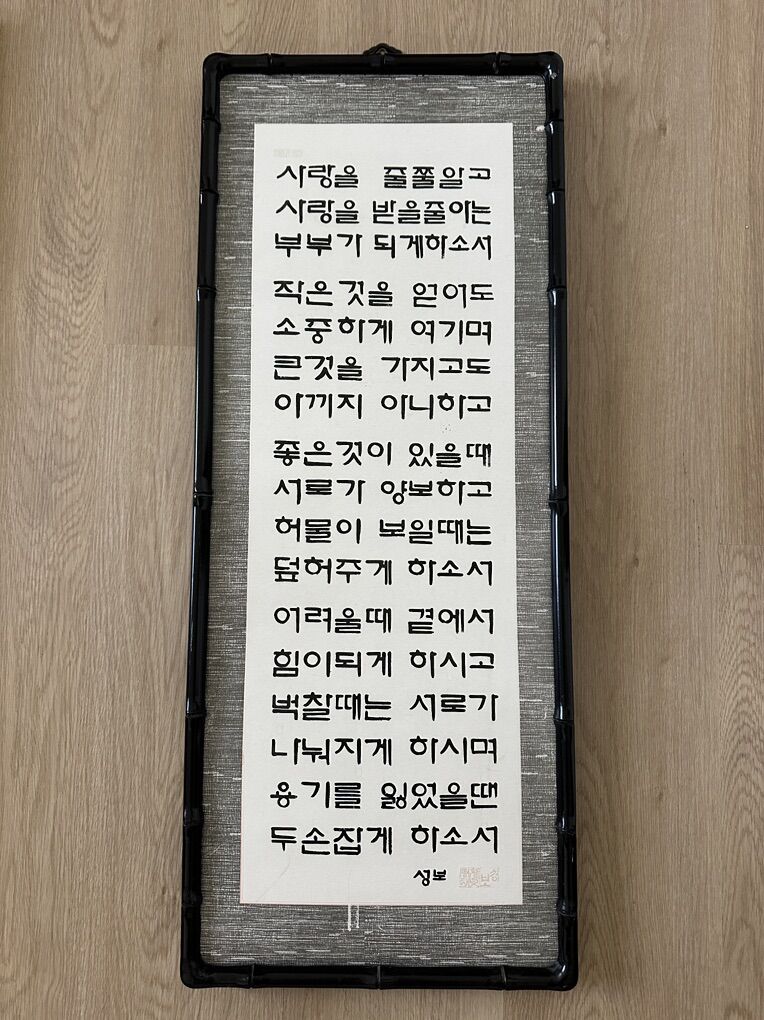 사랑을 줄줄알고
사랑을 받을줄아는
부부가 되게하소서
작은것을 얻어도
소중하게 여기며
큰것을 가지고도
아끼지 아니하고
좋은것이 있을때
서로가 양보하고
허물이 보일때는
덮혀주게 하소서
어려울때 곁에서
힘이되게 하시고
벅찰때는 서로가
나눠지게 하시며
용기를 잃었을땐
두손잡게 하소서
성보